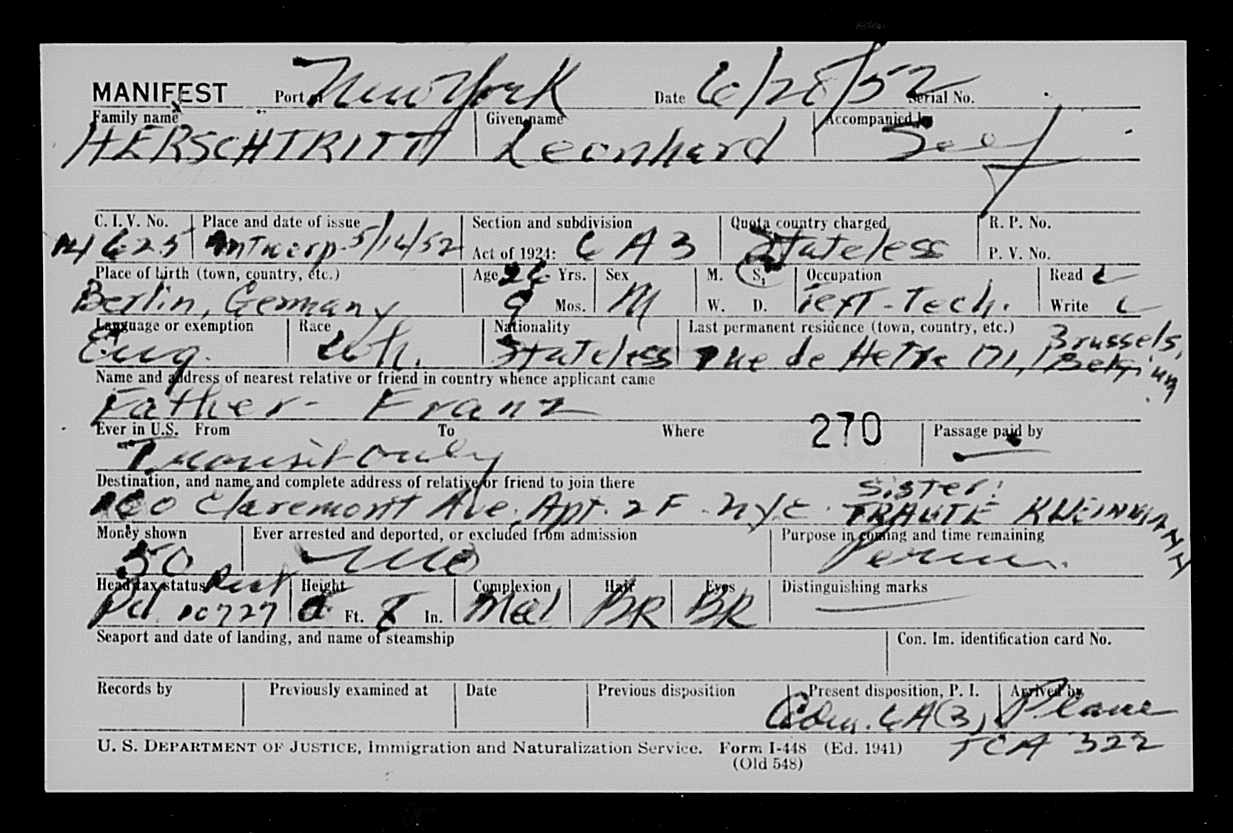 MANIFEST Port of New York Date 6/28/52 Serial No.
Family name Given name Accompanied by
HERSCHTRITT Leonhard Self
C. I. V. No. Place and date of issue Section and subdivision Quota country charged R. P. No.
14625 Antwerp 5/14/52 Act of 1924: 6 A 3 Stateless P. V. No.
Place of birth (town, country, etc.) Age 26 Yrs. Sex M. S. Occupation Read
Berlin, Germany 9 Mos. M W. D. Text-Tech. Write
Language or exemption Race Nationality Last permanent residence (town, country, etc.) Brussels,
Eng. Stateless rue de 171, Belgium
Name and address of nearest relative or friend in country whence applicant came
Father - Franz
Ever in U.S. From To Where 270 Passage paid by
Transit only
Destination, and name and complete address of relative or friend to join there Sister:
Claremont Ave, Apt. 2F - NYC TRAUTE KLEINMANN
Money shown Ever arrested and deported, or excluded from admission Purpose in coming and time remaining
50 No Perm.
Head tax status Rect Height Complexion Hair Eyes Distinguishing marks
Pd 20727 Ft. 8 In. Med BR BR
Seaport and date of landing, and name of steamship Con. Im. identification card No.
Records by Previously examined at Date Previous disposition Present disposition, P. I. Arrived by
Adm. 6A(3) Plane
U. S. DEPARTMENT OF JUSTICE, Immigration and Naturalization Service. Form I-448 (Ed. 1941) TCA 322
(Old 548)